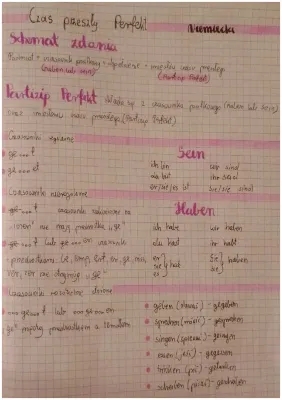 Czas przeszły Perfekt
Niemiecki
Schemat zdania
Podmiot + czasownik posiłkowy + dopełnienie + imiesłów czasu przeszłego
(haben lub sein)
(Partizip Perfekt)
Partizip Perfekt składa się z czasownika posiłkowego (haben lub sein)
oraz imiesłowu czasu przeszłego (Partizip Perfekt)
Czasowniki regularne
ge...t
ge...et
Sein
ich bin wir sind
du bist ihr seid
er/sie/es ist Sie/sie sind
Czasowniki nieregularne
czasowniki zakończone na
"ieren" nie mają przedrostka "ge"
ge...t lub ge...en
przedrostkami
nie dostają "ge"
Haben
ich habe wir haben
du hast ihr habt
er
sie hat
es
Sie haben
sie
Czasowniki rozdzielnie złożone
...ge...t lub ...ge...en
"ge" między przedrostkiem a tematem
geben (dawać) - gegeben
sprechen (mówić) - gesprochen
singen (śpiewać) - gesungen
essen (jeść) - gegessen
trinken (pić) - getrunken
schreiben (pisać) - geschrieben